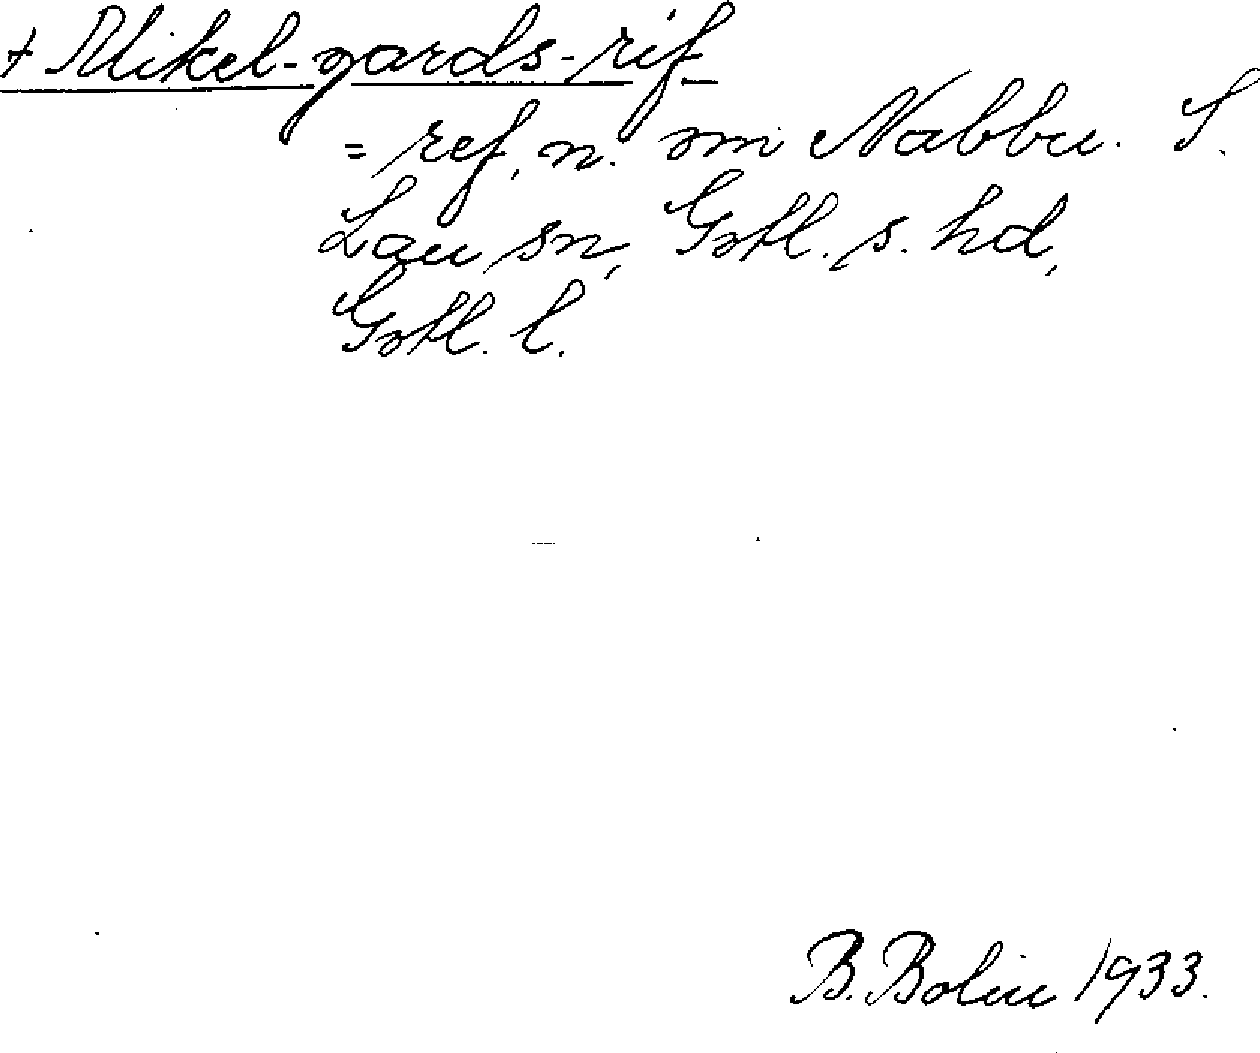 + Mikel-gards-rif
= ref, n. om Nabbu. S.
Lau sn, Gotl. s. hd,
Gotl. l.
B. Bolin 1933.